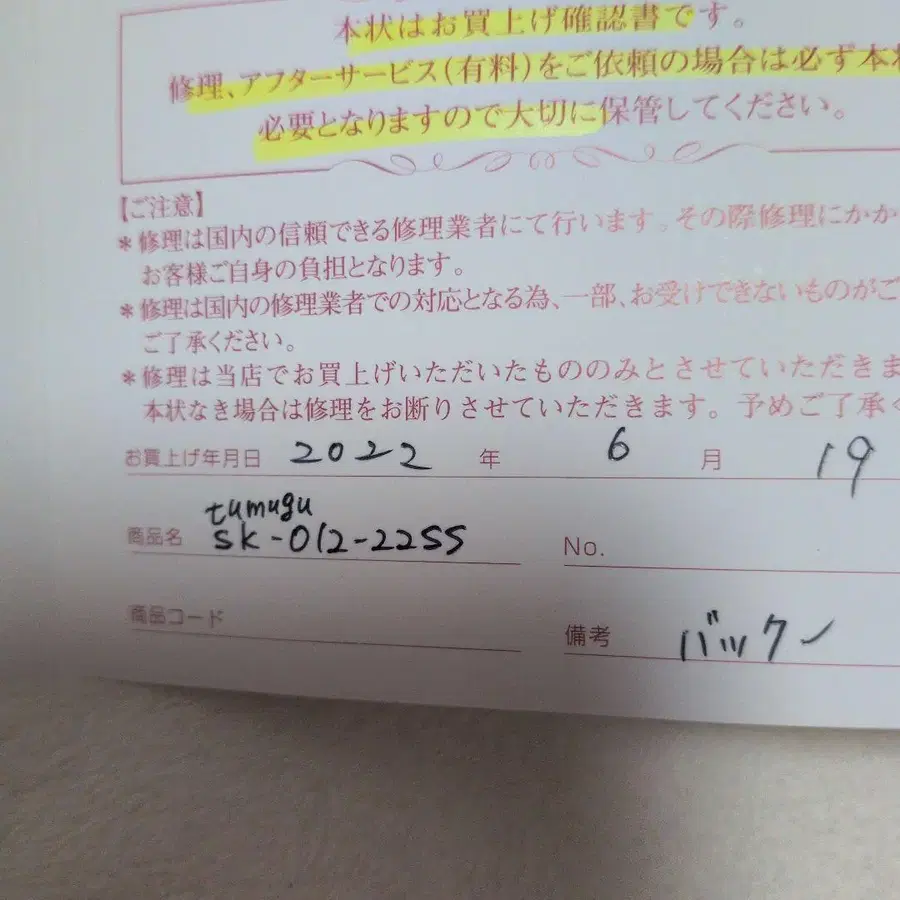 本状はお買上げ確認書です。
修理、アフターサービス(有料)をご依頼の場合は必ず本状
必要となりますので大切に保管してください。
【ご注意】
*修理は国内の信頼できる修理業者にて行います。その際修理にかか
お客様ご自身の負担となります。
*修理は国内の修理業者での対応となる為、一部、お受けできないものがご
ご了承ください。
*修理は当店でお買上げいただいたもののみとさせていただきま
本状なき場合は修理をお断りさせていただきます。予めご了承く
お買上げ年月日 2022 年 6 月 19
tumugu
商品名 SK-012-2255 No.
商品コード
備考 バック